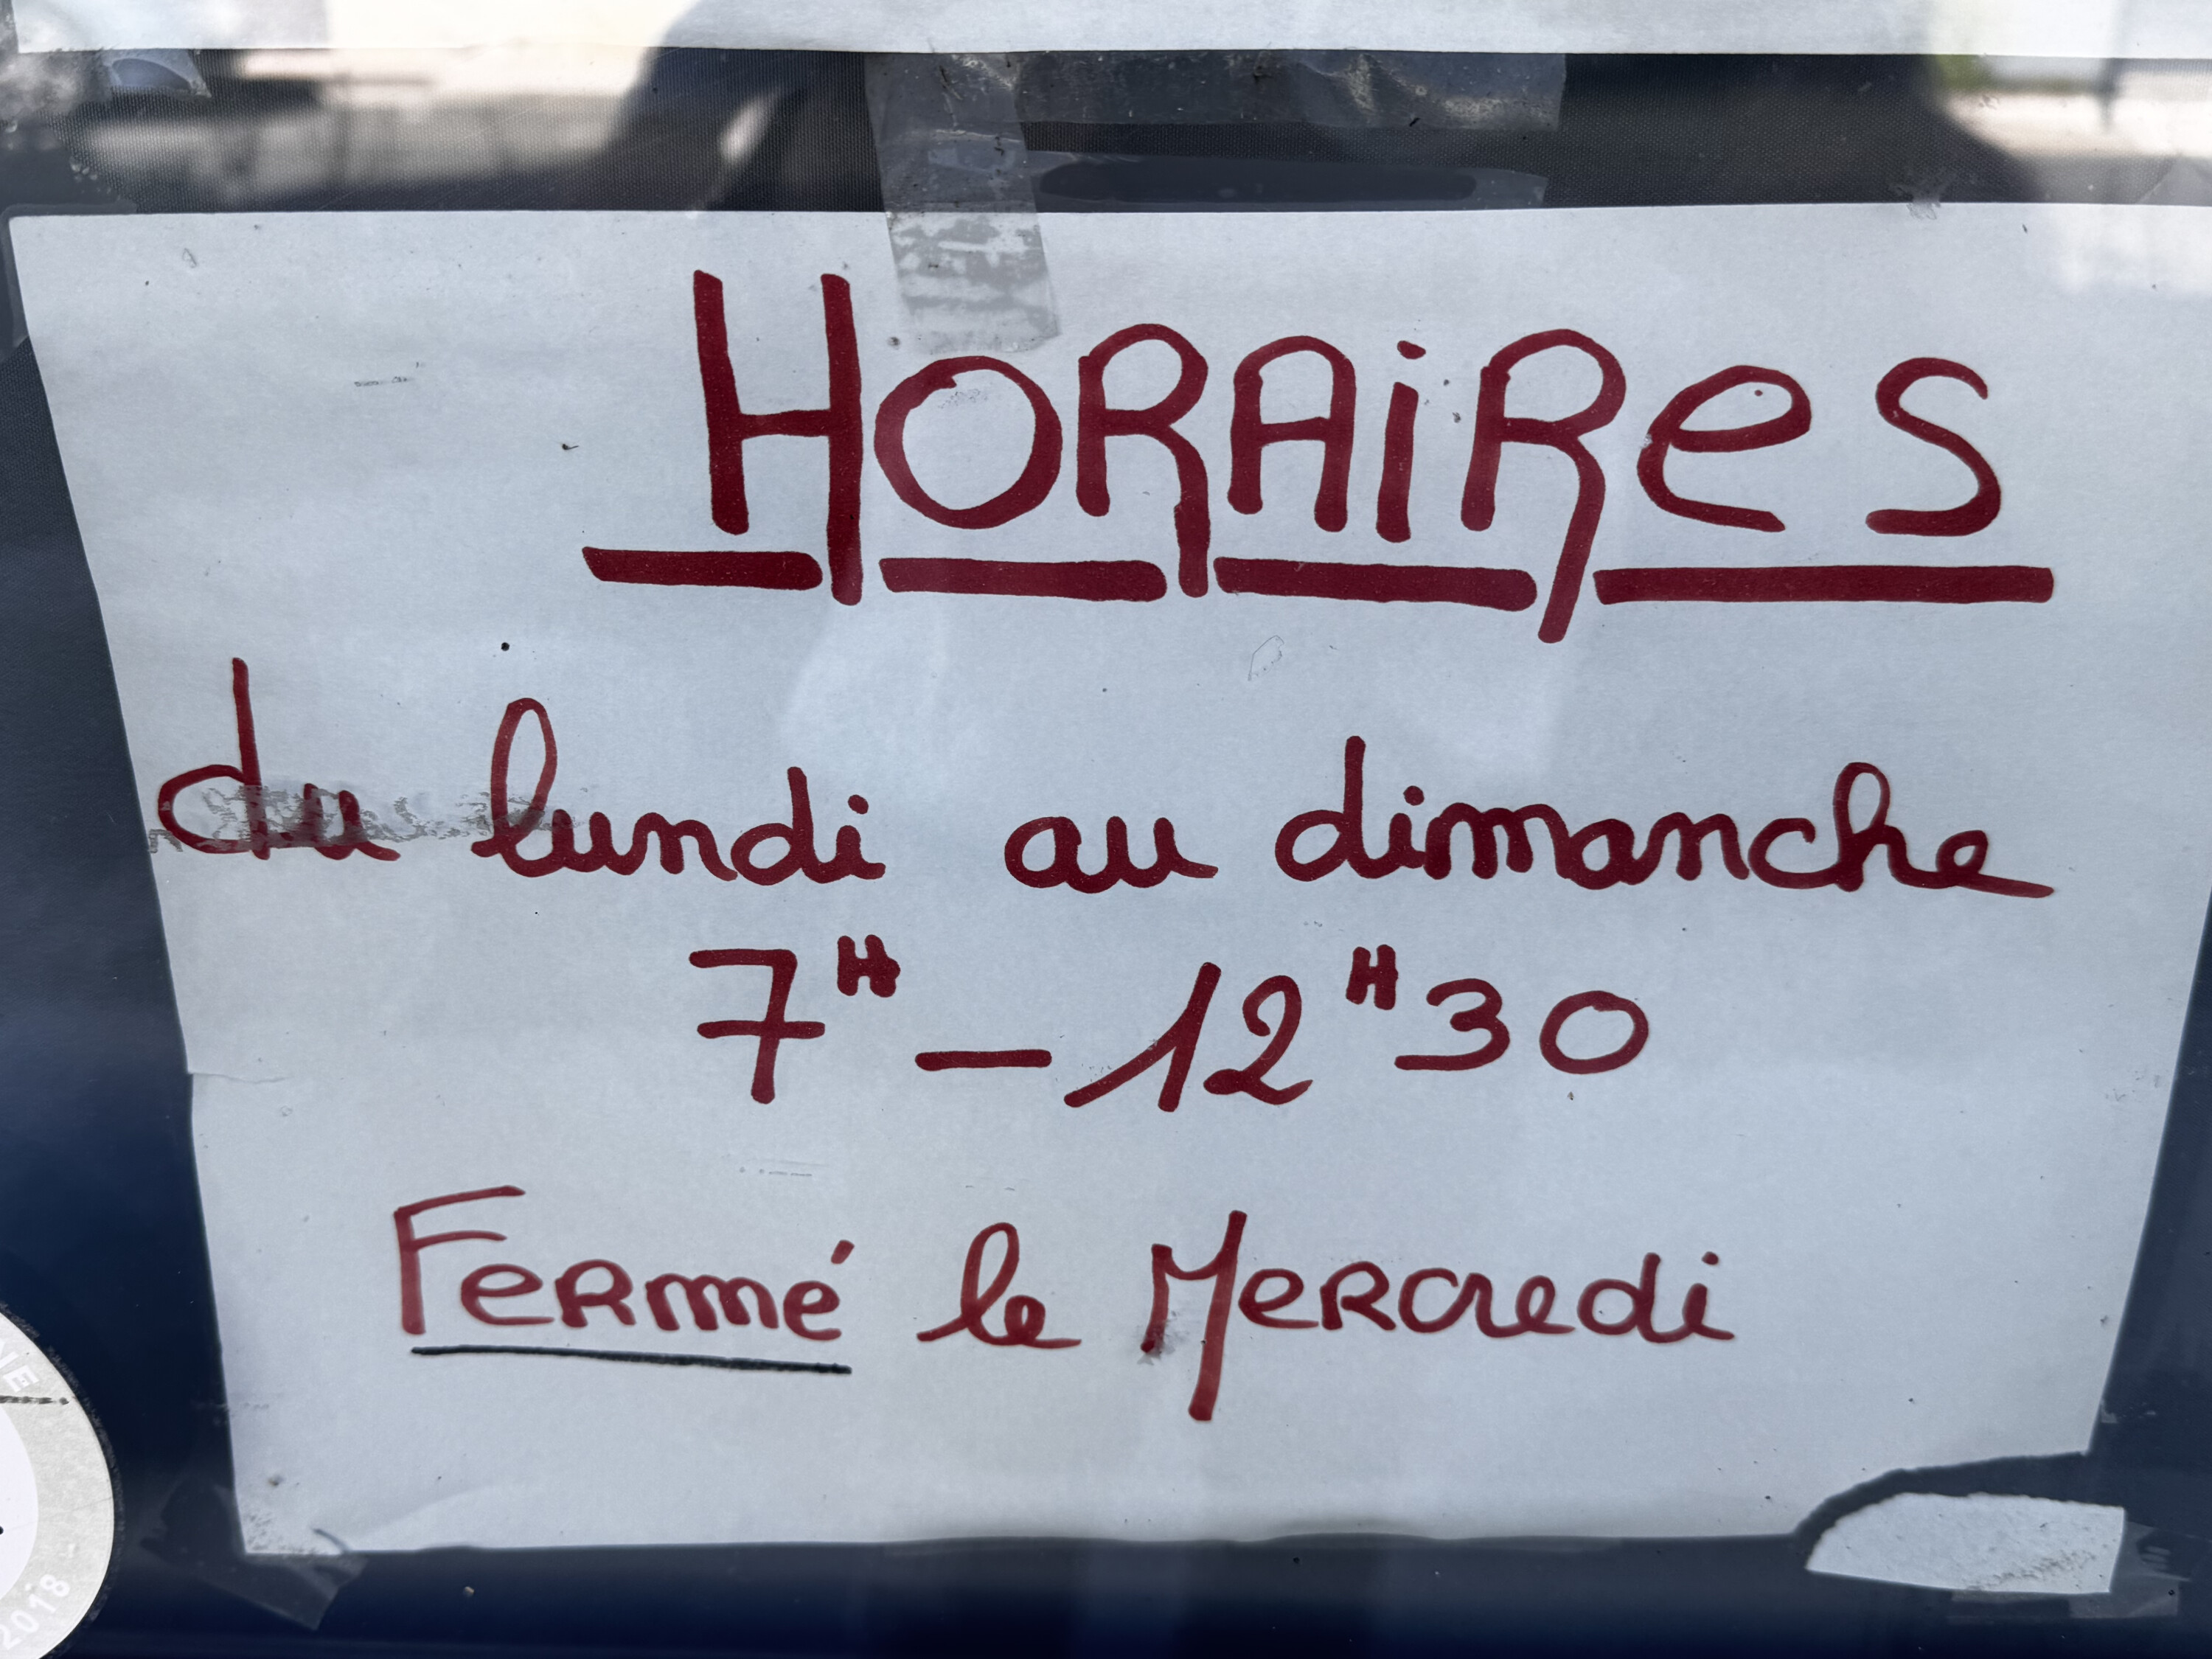 HORAiRes
du lundi au dimanche
7H - 12H30
FeRmé le MeRcredi
NE
2018